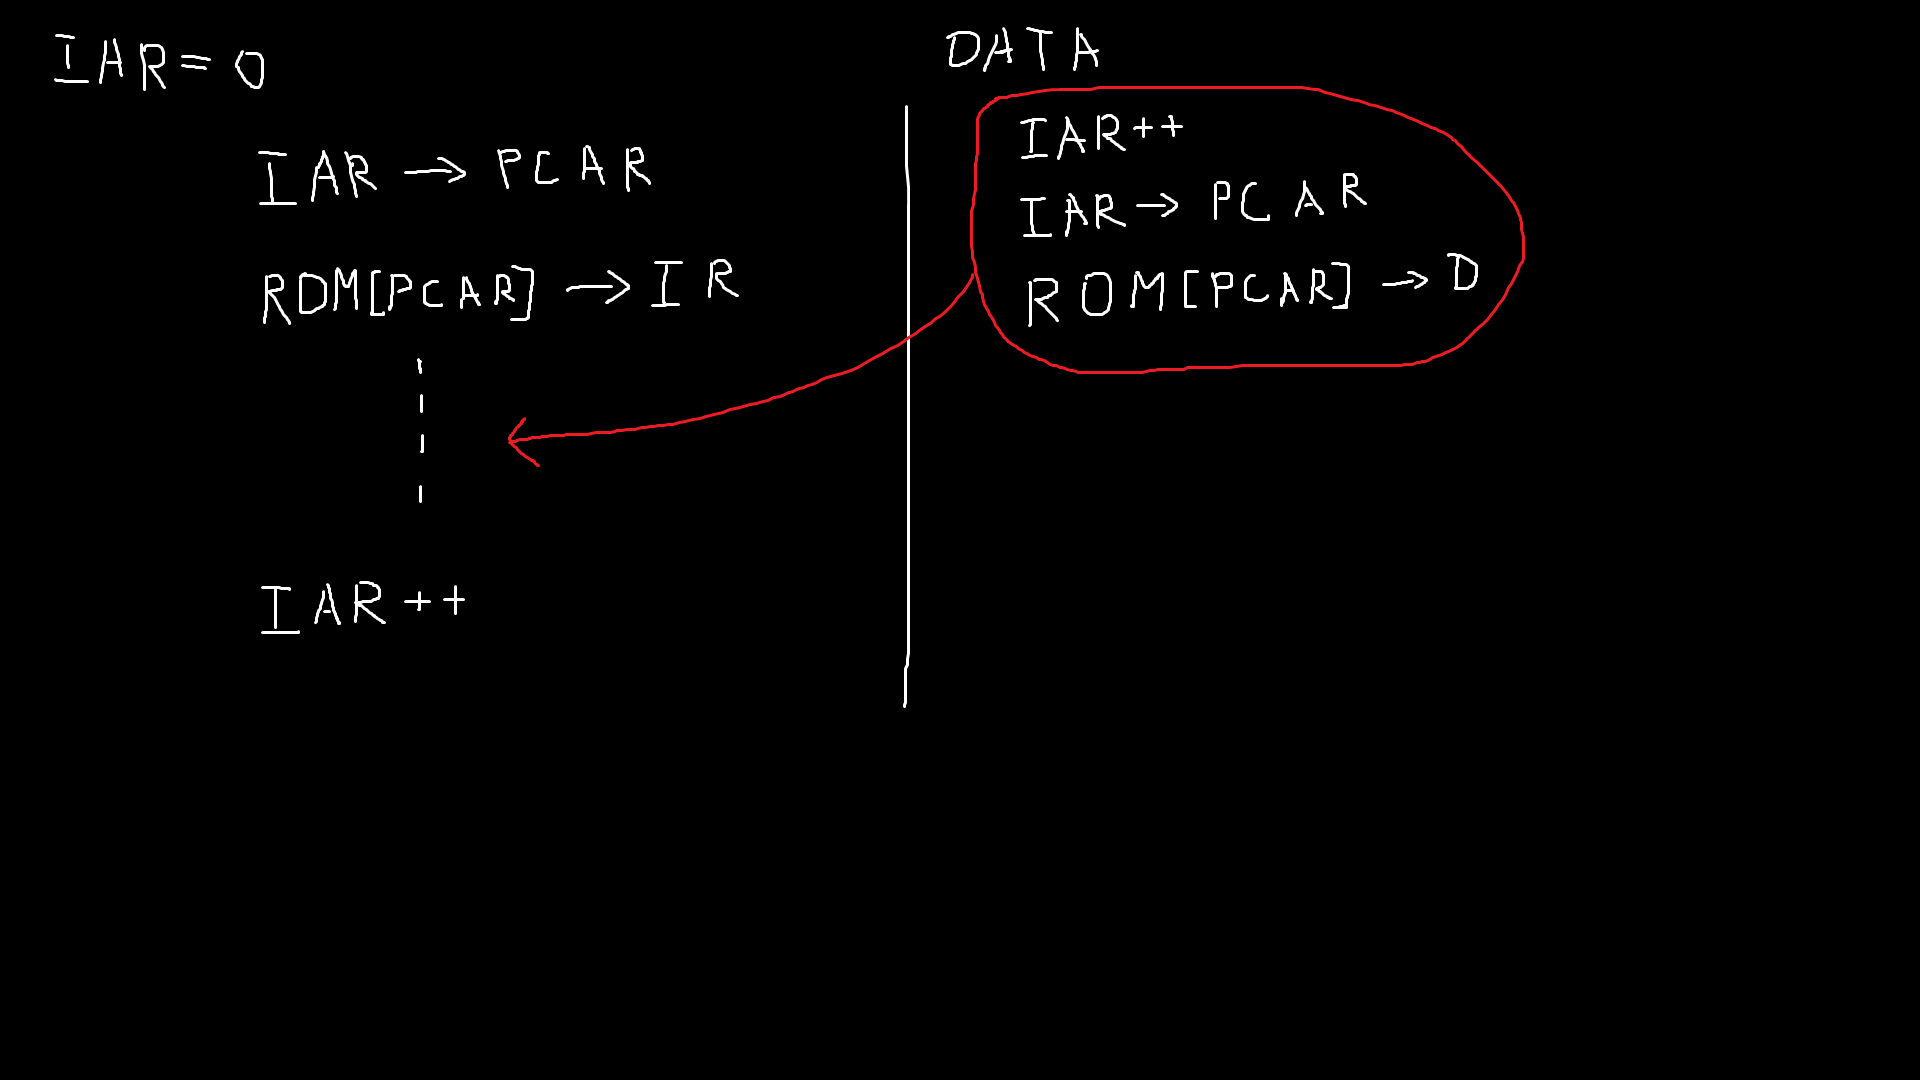 IAR = 0
IAR → PCAR
ROM[PCAR] → IR
IAR ++
DATA
IAR++
IAR → PCAR
ROM[PCAR] → D